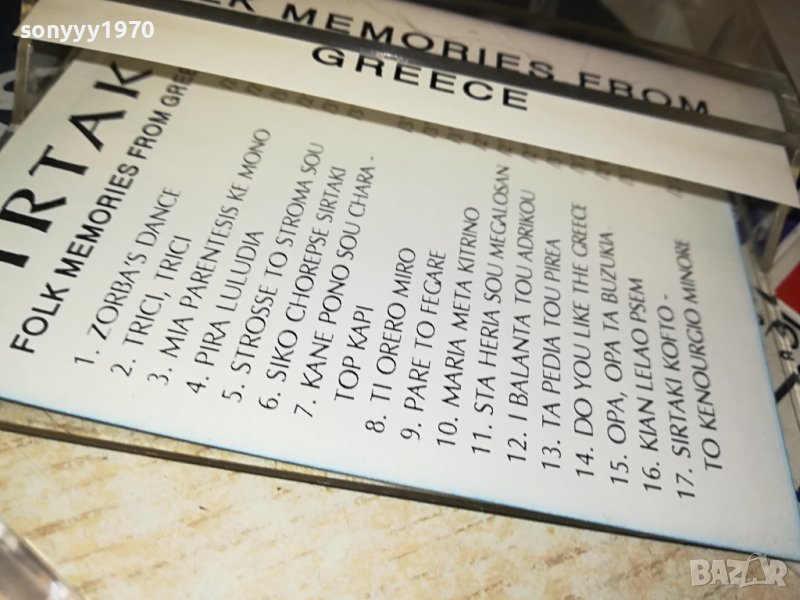 sonyyy1970
MEMORIES FROM
GREECE
IRTAK
FOLK MEMORIES FROM GREE
1. ZORBA'S DANCE
2. TRICI, TRICI
3. MIA PARENTESIS KE MONO
4. PIRA LULUDIA
5. STROSSE TO STROMA SOU
6. SIKO CHOREPSE SIRTAKI
7. KANE PONO SOU CHARA -
TOP KAPI
8. TI ORERO MIRO
9. PARE TO FEGARE
10. MARIA META KITRINO
11. STA HERIA SOU MEGALOSAN
12. I BALANTA TOU ADRIKOU
13. TA PEDIA TOU PIREA
14. DO YOU LIKE THE GREECE
15. OPA, OPA TA BUZUKIA
16. KIAN LELAO PSEM
17. SIRTAKI KOFTO -
TO KENOURGIO MINORE
BAZAR